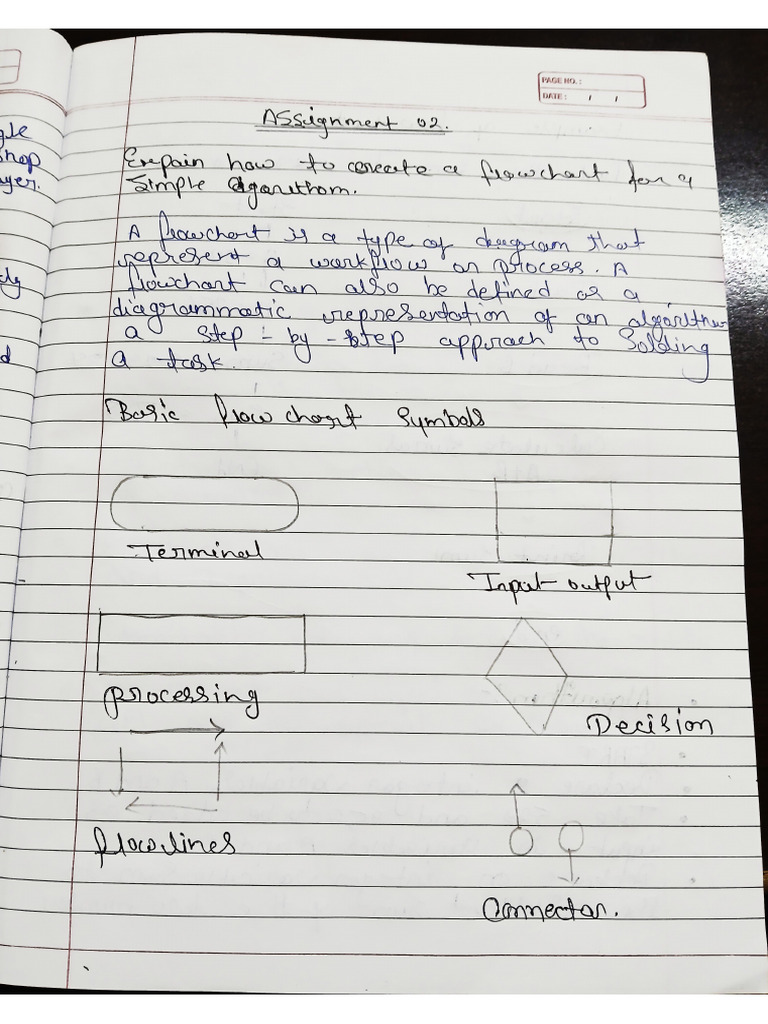 PAGE NO.:
DATE: / /
gle
shop
ayer.
d
Assignment 02.
Exepain how to coreate a flowchart for a
Simple algorithom.
A flowchart is a type of diagram that
represent a workflow or process. A
flowchart can also be defined as a
diagrammatic representation of an algorithm
a step - by - step approach to Solding
a task.
Basic flow chart symbols
Terminal
Input output
processing
Decision
flowlines
Connector.